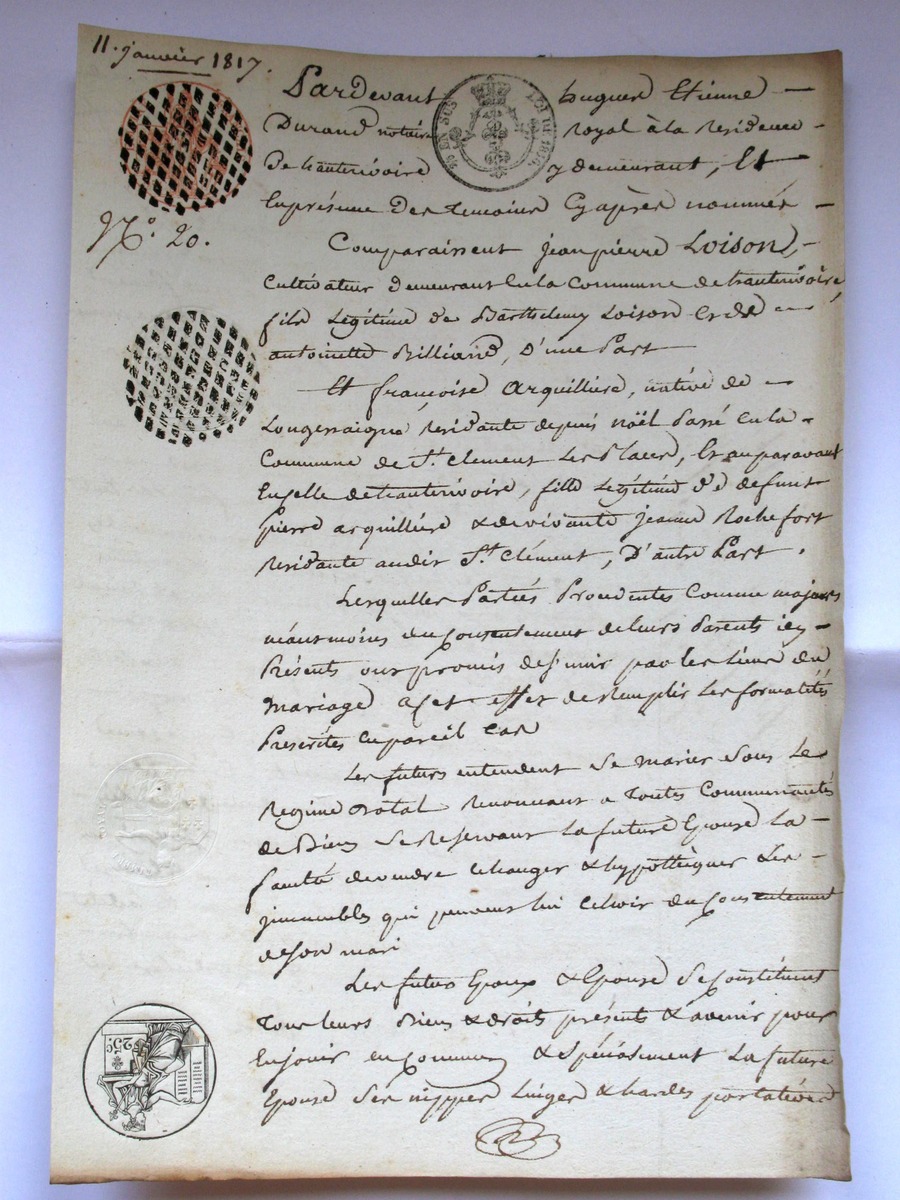 11. janvier 1817.
Pardevant hugues Etienne
Durand notaire Royal à la Residence
De hauterivoire y demeurant, Et
En présence Des temoins Cyaprès nommés
N.° 20.
Comparaissent jean pierre Loison,
Cultivateur demeurant En la Commune de hauterivoire,
fils Légitime de Barthelemy Loison Et de
antoinette Billiard, D'une Part
Et françoise arquilliere, native de
Longessaigne Residante depuis noël Passé En la
Commune de S.t Clement Les Places, Et auparavant
En celle de hauterivoire, fille Légitime de defunt
Pierre arquilliere & de vivante jeanne Rochefort
Residante audit S.t Clément, D'autre Part.
Lesquelles Parties Procedentes Comme majeurs
néantmoins du Consentement de leurs Parents icy
Présents ont promis de s'unir par les liens du
mariage a cet effet de Remplir Les formalités
Prescrites En pareil Cas
Les futurs entendent se marier sous Le
Regime Dotal Renonçant a Toutes Communautés
de Biens se Reservant La future Epouse La
faculté de vendre Echanger & hypothèquer Les
immeubles qui peuvent lui Echoir du Consentement
de son mari
Les futurs Epoux & Epouse se Constituent
Tous leurs Biens & droits présents & avenir pour
En jouir en Commun & spécialement La future
Epouse ses nippes Linges & hardes portatives
25c.